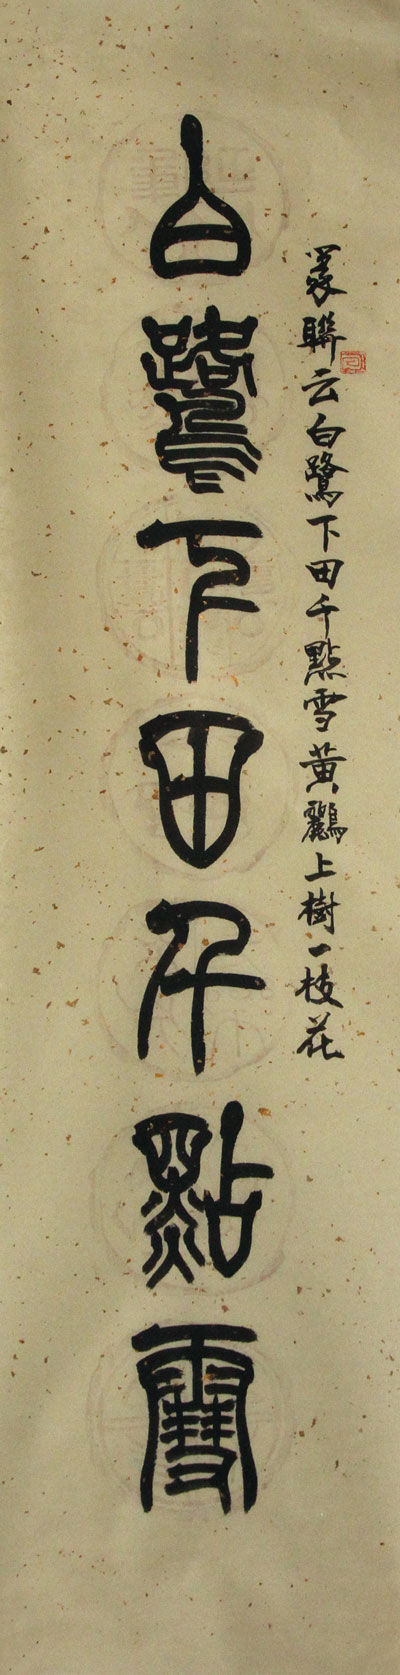 篆聯云白鷺下田千點雪黃鸝上樹一枝花
白鷺下田千點雪